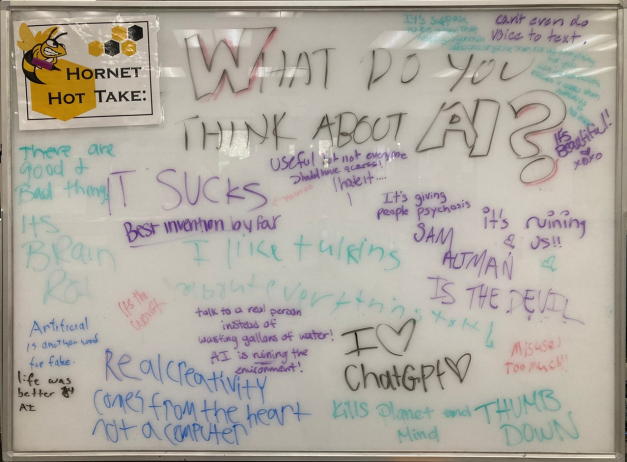 HORNET
HOT TAKE:
WHAT DO YOU
THINK ABOUT AI?
can't even do
voice to text.
It's
Beautiful!!
xoxo
There are
good &
Bad things
IT SUCKS
Best invention by far
Useful but not everyone
should have access!
I hate it....
It's giving
people psychosis
SAM
ALTMAN
IS THE DEVIL
it's ruining
us!!
Its
BRain
Rot
I like talking
about everything
to it
Its the
worst
Artificial
is another word
for fake.
life was
better
AI
talk to a real person
instead of
wasting gallons of water!
AI is ruining the
enviorment!
Real creativity
comes from the heart
not a computer
I ♡
ChatGpt ♡
Misused
Too much!!
Kills Planet and
Mind
THUMB
DOWN